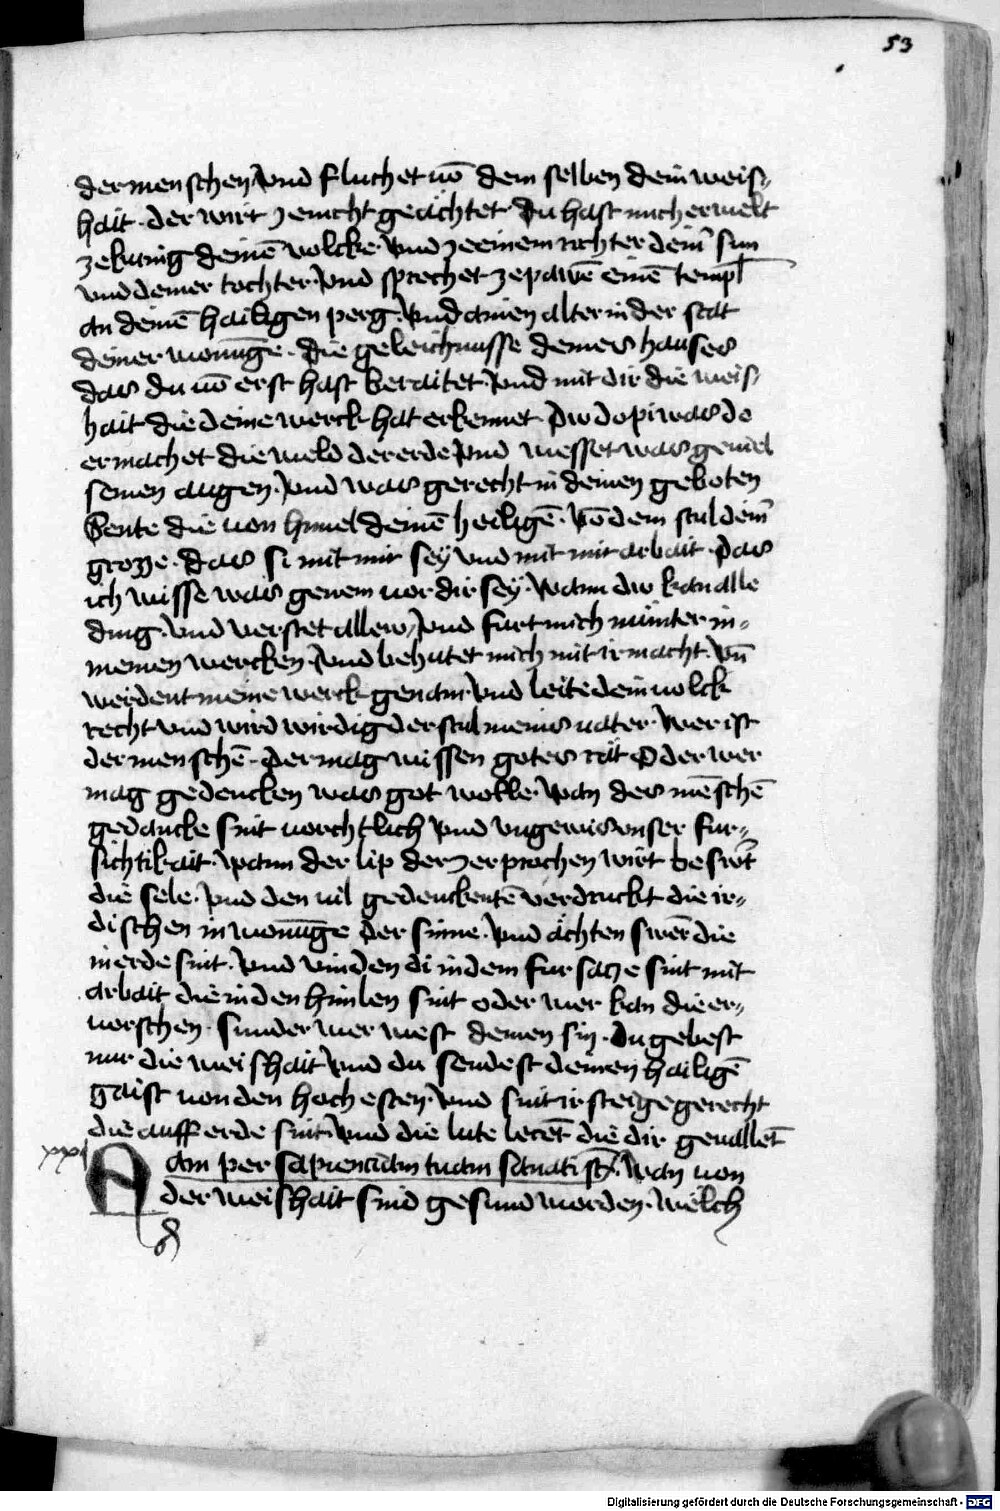 53
der menschen vnd fluchet uō dem selben dein weis⸗
hait · der wirt ze nicht geächtet · Du hast mich erwelt
ze kunig deinē volcke · vnd ze einem richter deinˀ sun
vnd deiner tochter · vnd sprechet ze pawē einē templ
an deinē hailigen perg · vnd ainen alter in der stat
deiner wonūge · die geleichnusse deines hauses
das du uō erst hast beraitet · vnd mit dir die weis⸗
hait die deine werck hat erkennet Dw do pi was do
er machet die weld der erde vnd wesset was geuiel
seinen augen · vnd was gerecht in deinen geboten
Sente die uon himel deinē heiligē · vō dem stul deinˀ
grozze · das si mit mir sey vnd mit mir arbait · Das
ich wisse was genem uor dir sey · Wann dw kan alle
ding · vnd verstet allew · vnd furt mich nuinter in⸗
meinen wercken · vnd behutet mich mit ir macht · vn̄
werdent meine werck genam · vnd leite dein uolck
recht vnd wird wirdig der stul meins uater · Wer ist
der menschē · Der mag wissen gotes rät Oder wer
mag gedencken was got wolle · wan des mēschē
gedancke sint uorchtlich vnd vngewis vnser fur⸗
sichtikait · wann der lip der zerprochen wirt beswˀt
die sele · vnd den uil gedenckentē verdruckt die ir⸗
dischen inwonūge Der sinne · vnd ächten swer die
in erde sint · vnd vinden di in dem fursacze sint mit
arbait die in den himlen sint oder wer kan die er⸗
uorschen · sunder wer west deinen sin · du gebest
nur die weishait vnd du sendest deinen hailigē
gaist uon den hochesten · vnd sint ir steige gerecht
die auff erde sint · vnd die lute lerēt die dir geuallēt
xxxi
Nam per sapienciam tuam sanati s̄t · Wan uon
der weishait sind gesund worden · welch
Digitalisierung gefördert durch die Deutsche Forschungsgemeinschaft - DFG